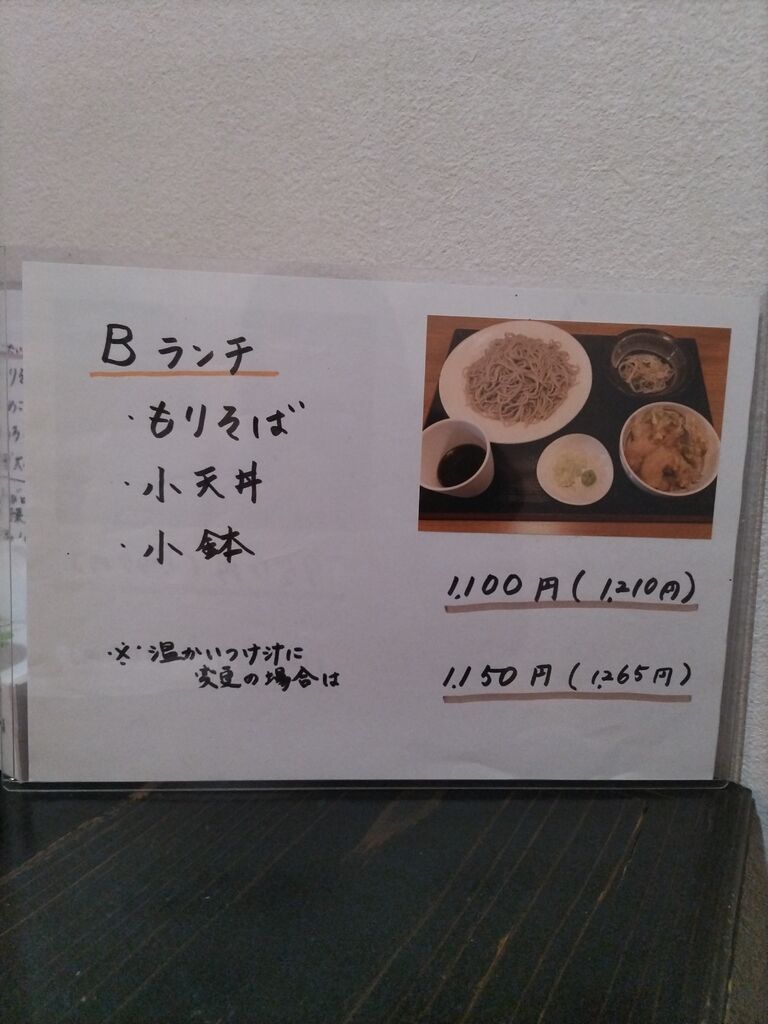 Bランチ
・もりそば
・小天丼
・小鉢
1,100円(1,210円)
※温かいつけ汁に
変更の場合は
1,150円(1,265円)